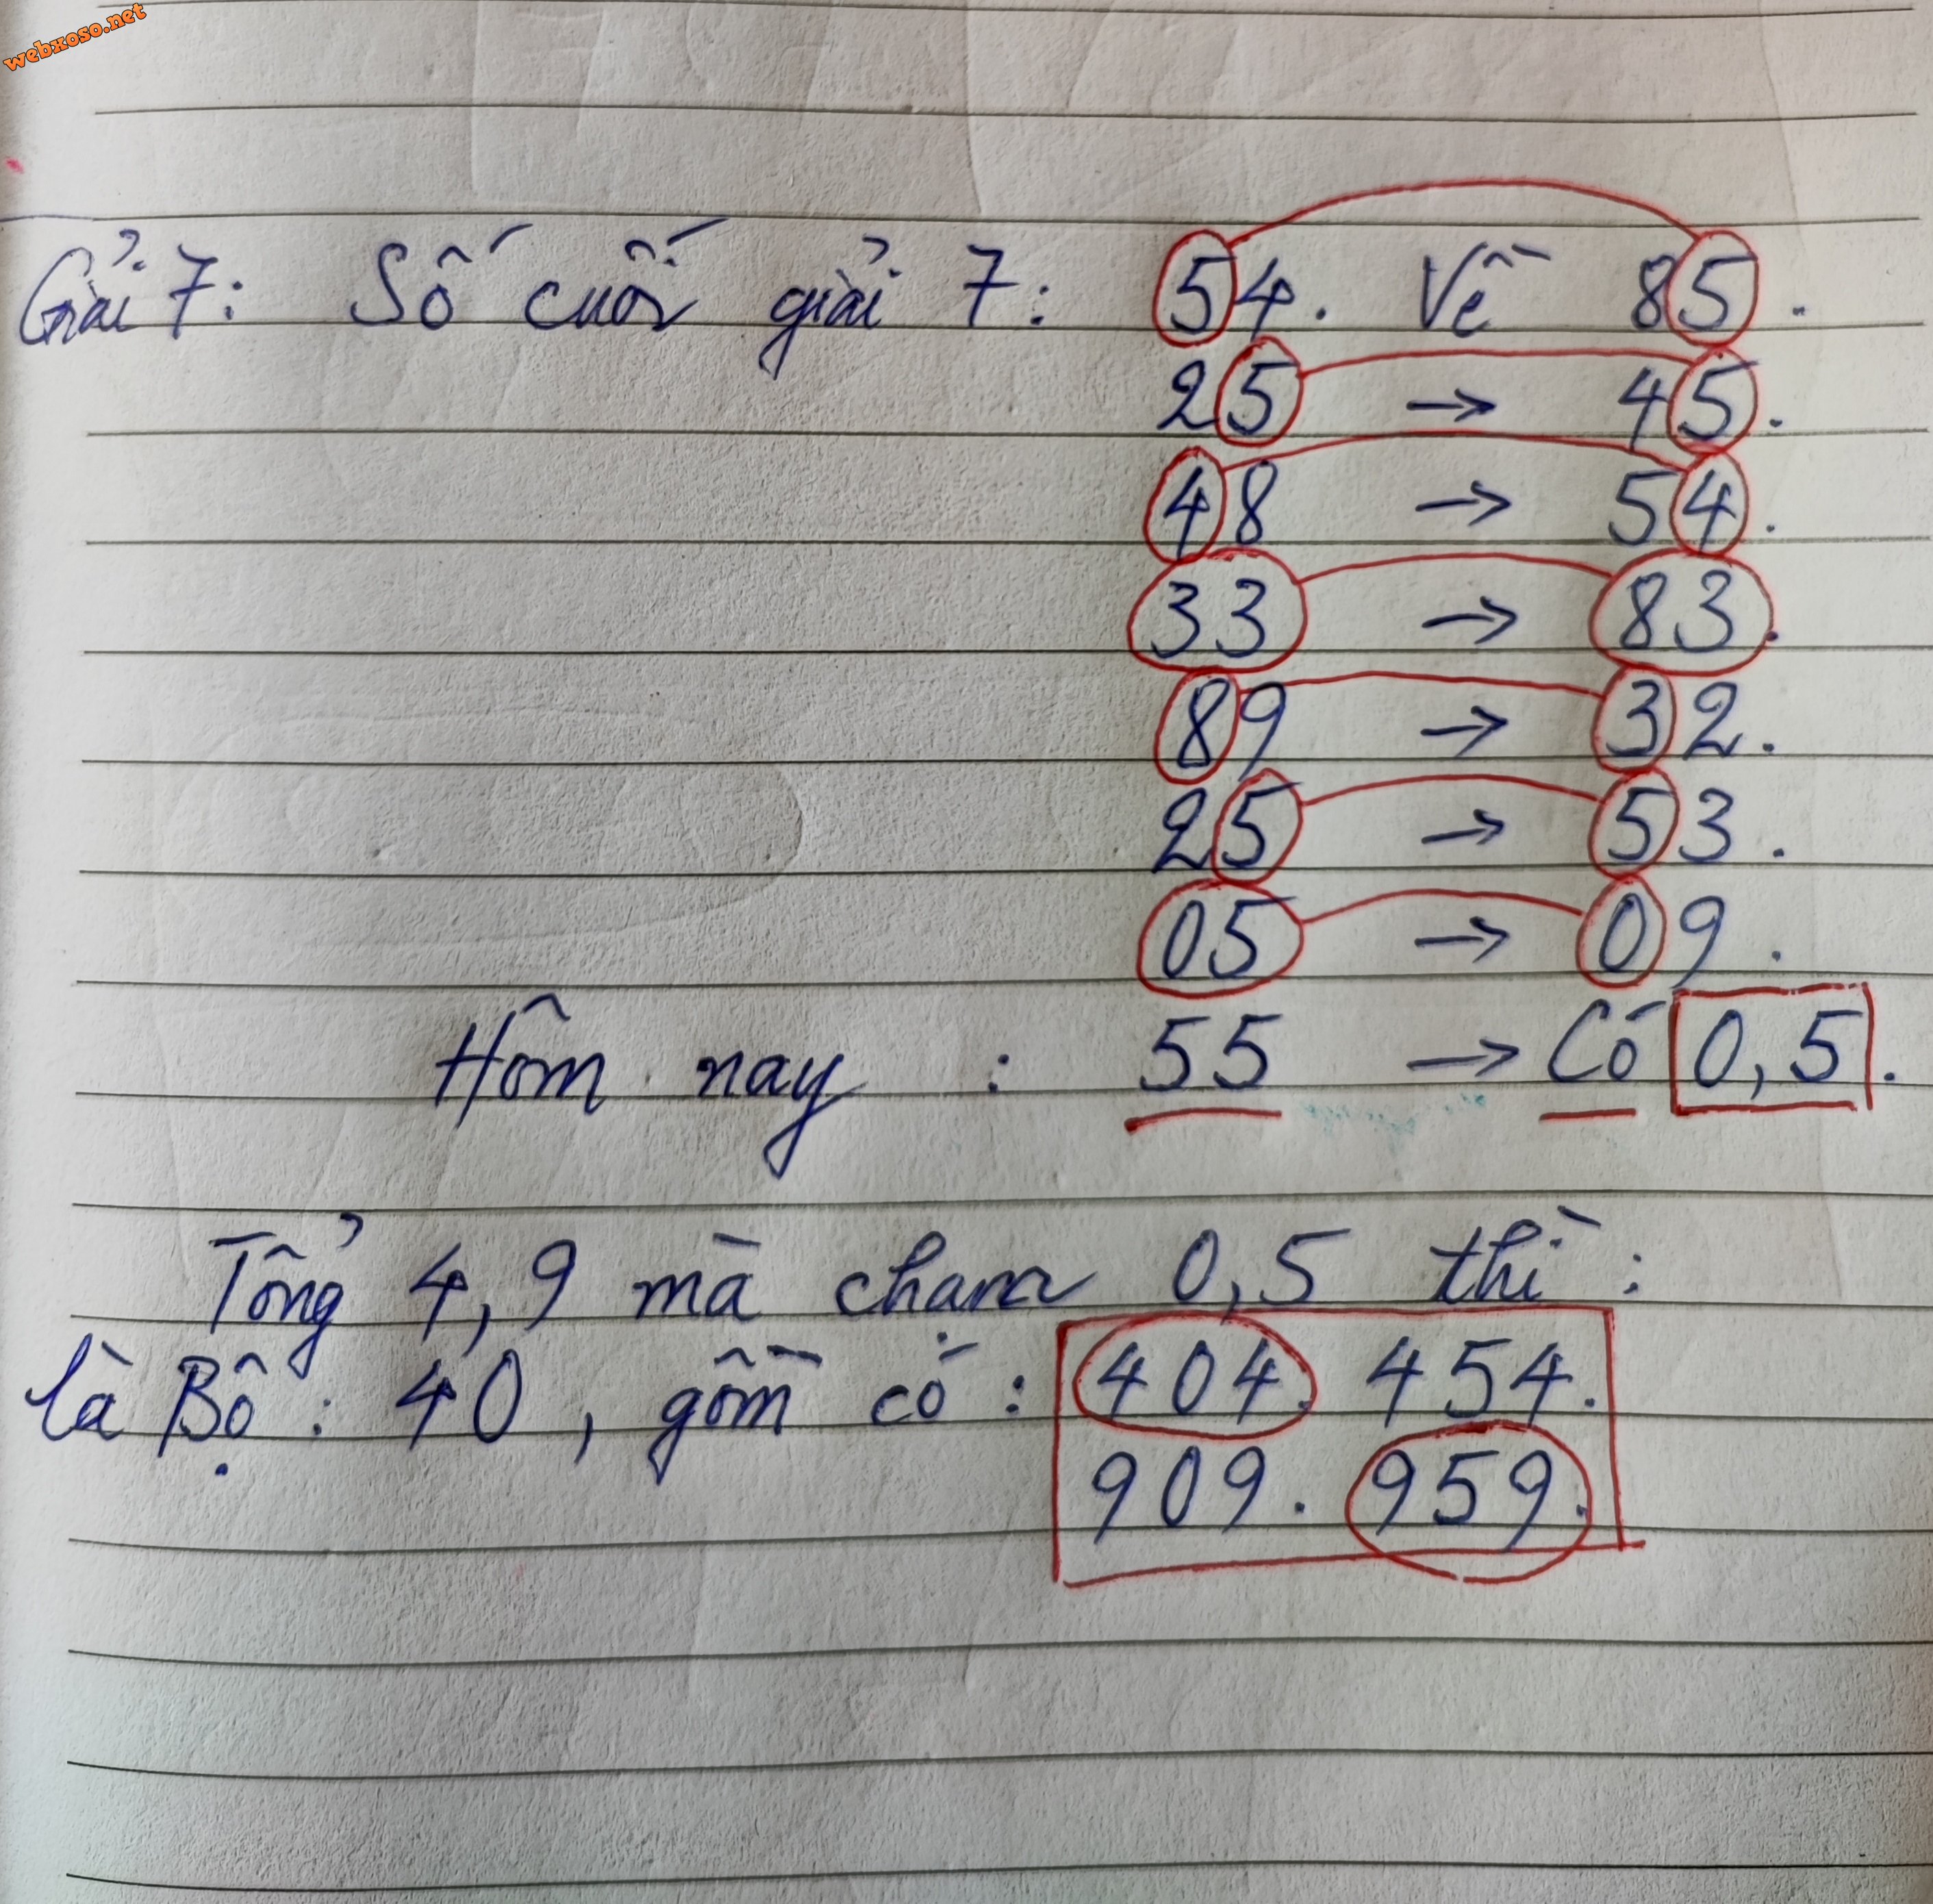 webxoso.net
Giải 7: Số cuối giải 7: 54. Về 85.
25 → 45.
48 → 54.
33 → 83.
89 → 32.
25 → 53.
05 → 09.
Hôm nay : 55 → Có 0,5.
Tổng 4,9 mà chạm 0,5 thì:
là Bộ: 40, gồm có: 404. 454.
909. 959.